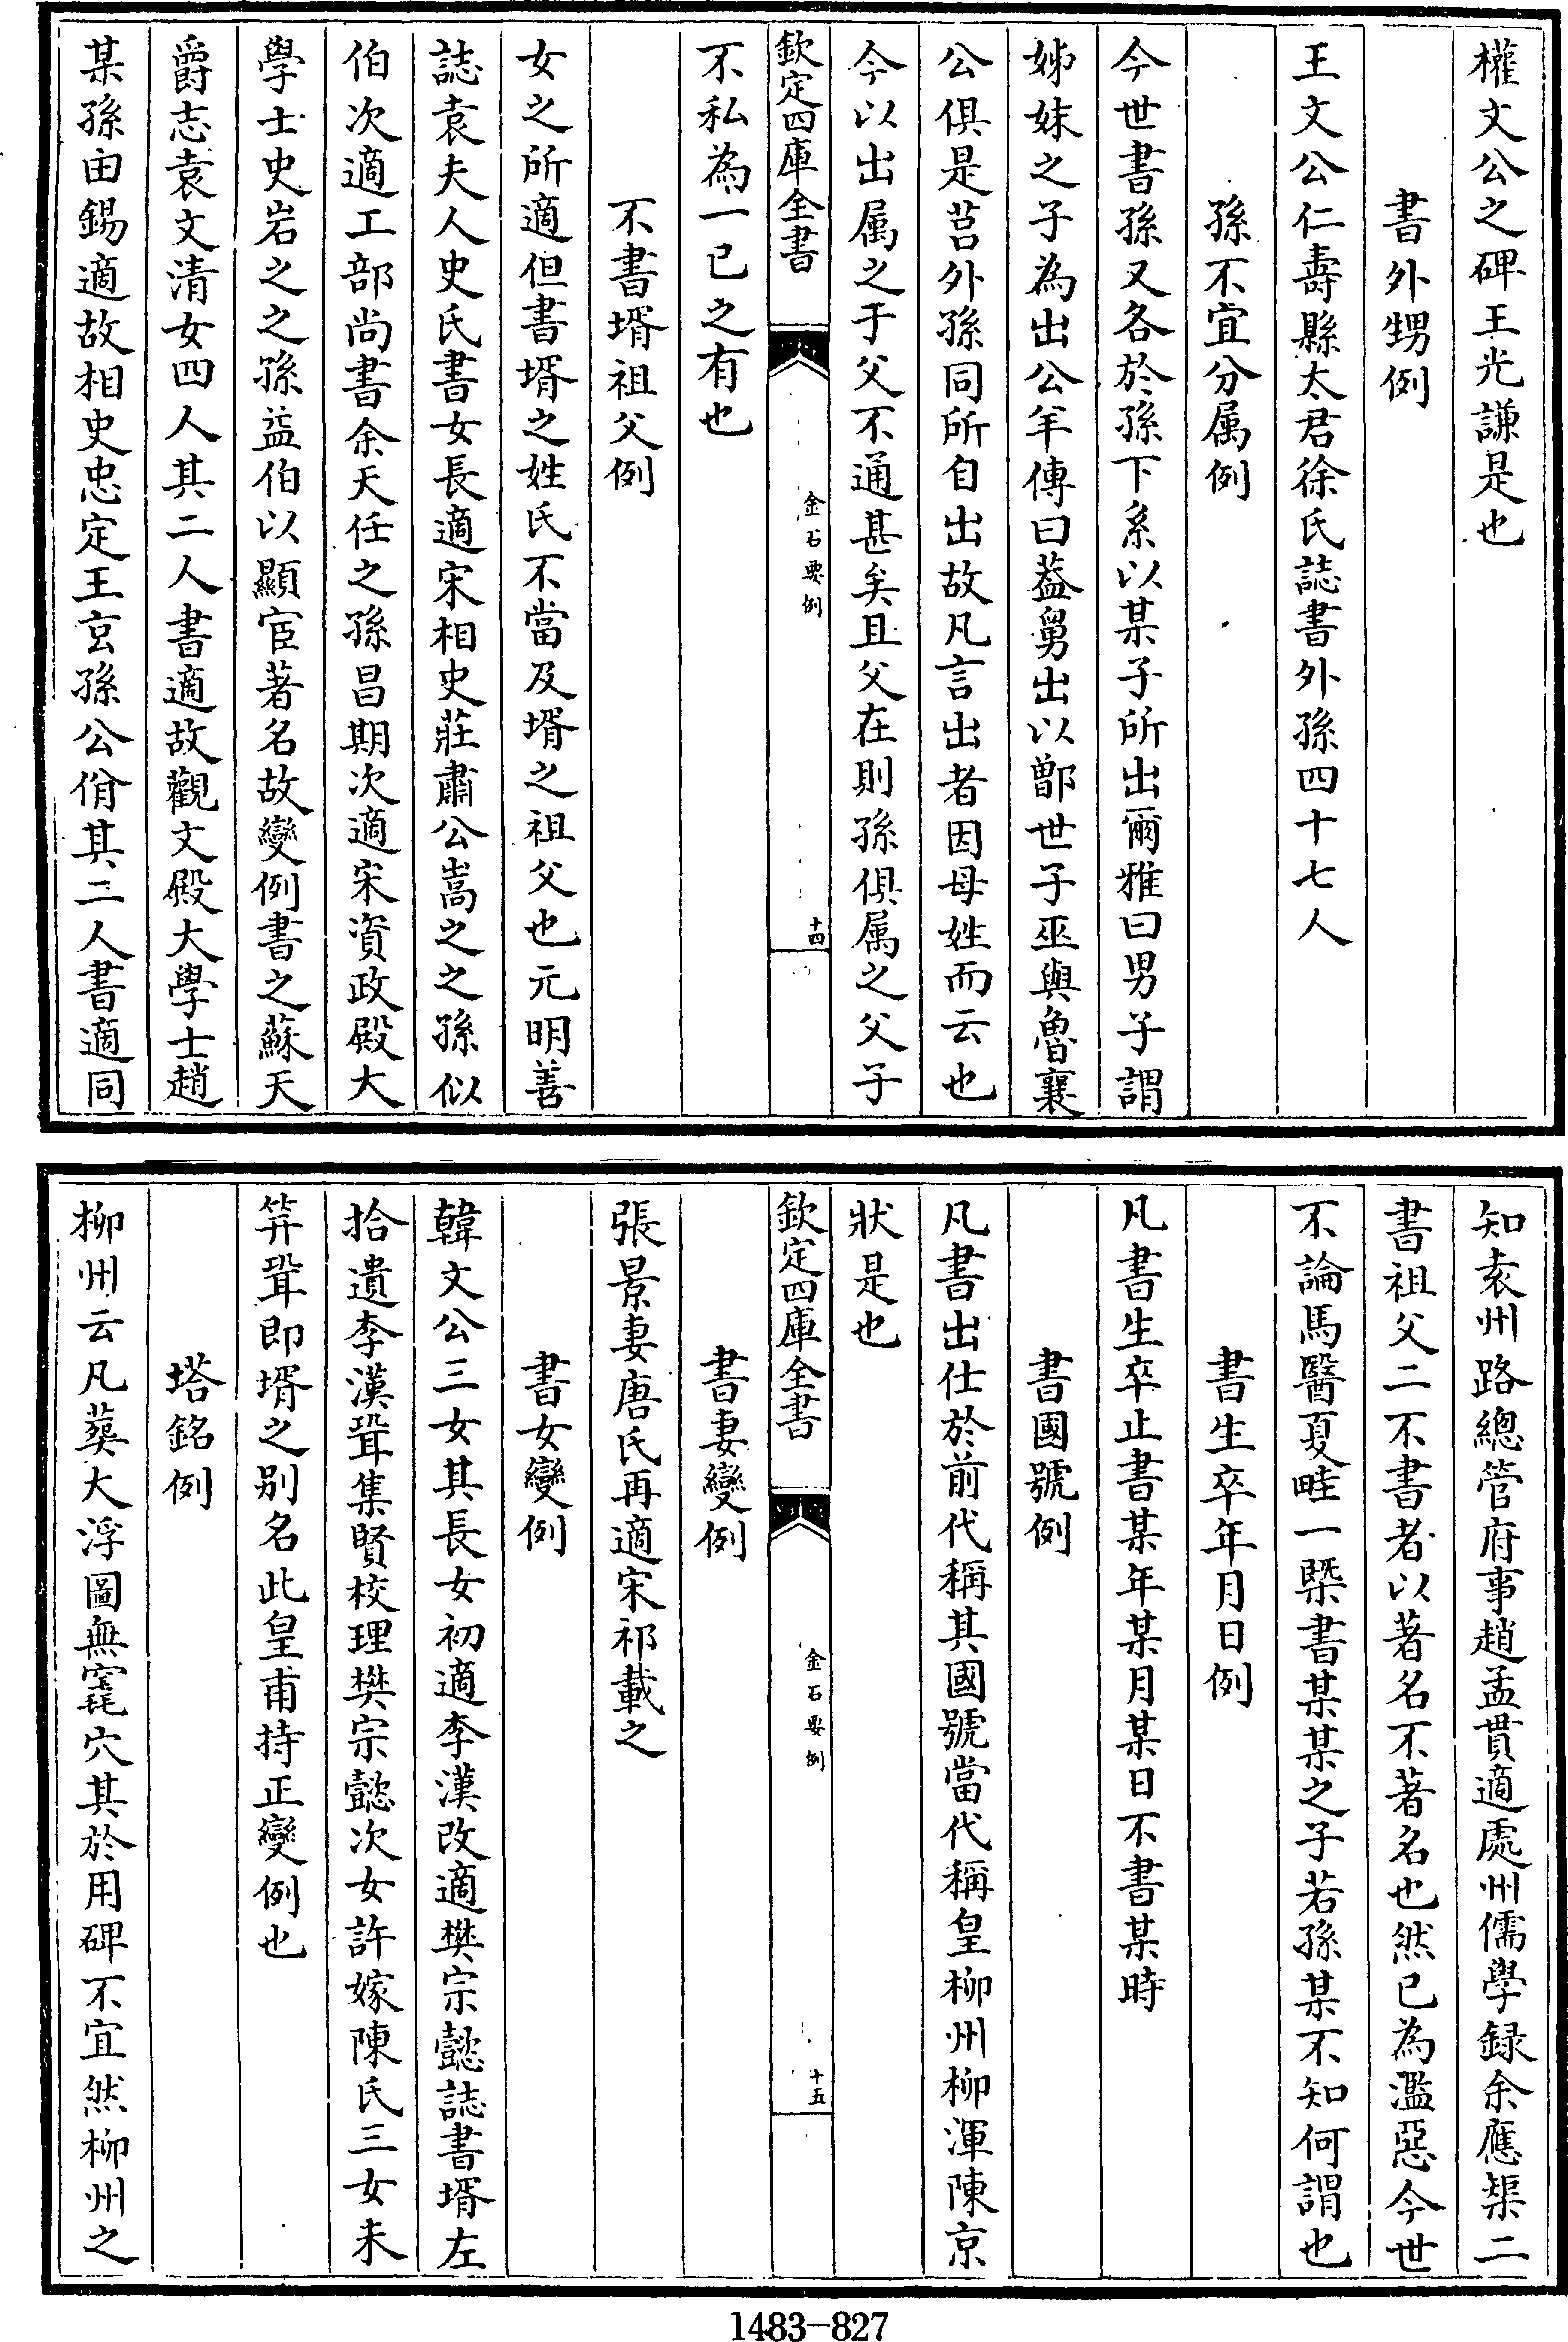 權文公之碑王光謙是也
書外甥例
王文公仁壽縣太君徐氏誌書外孫四十七人
孫不宜分属例
今世書孫又各於孫下系以某子所出爾雅曰男子謂
姊妹之子為出公羊傳曰葢舅出以鄫世子巫與魯襄
公俱是莒外孫同所自出故凡言出者因母姓而云也
今以出属之于父不通甚矣且父在則孫俱属之父子
欽定四庫全書
金石要例
十四
不私為一已之有也
不書壻祖父例
女之所適但書壻之姓氏不當及壻之祖父也元明善
誌袁夫人史氏書女長適宋相史莊肅公嵩之之孫似
伯次適工部尚書余天任之孫昌期次適宋資政殿大
學士史岩之之孫益伯以顯宦著名故變例書之蘇天
爵志袁文清女四人其二人書適故觀文殿大學士趙
某孫由錫適故相史忠定王玄孫公佾其二人書適同
知袁州路總管府事趙孟貫適處州儒學録余應榘二
書祖父二不書者以著名不著名也然已為濫惡今世
不論馬醫夏畦一槩書某某之子若孫某不知何謂也
書生卒年月日例
凡書生卒止書某年某月某日不書某時
書國號例
凡書出仕於前代稱其國號當代稱皇柳州柳渾陳京
狀是也
欽定四庫全書
金石要例
十五
書妻變例
張景妻唐氏再適宋祁載之
書女變例
韓文公三女其長女初適李漢改適樊宗懿誌書壻左
拾遺李漢聓集賢校理樊宗懿次女許嫁陳氏三女未
笄聓即壻之别名此皇甫持正變例也
塔銘例
柳州云凡葬大浮圖無竁穴其於用碑不宜然柳州之
1483-827